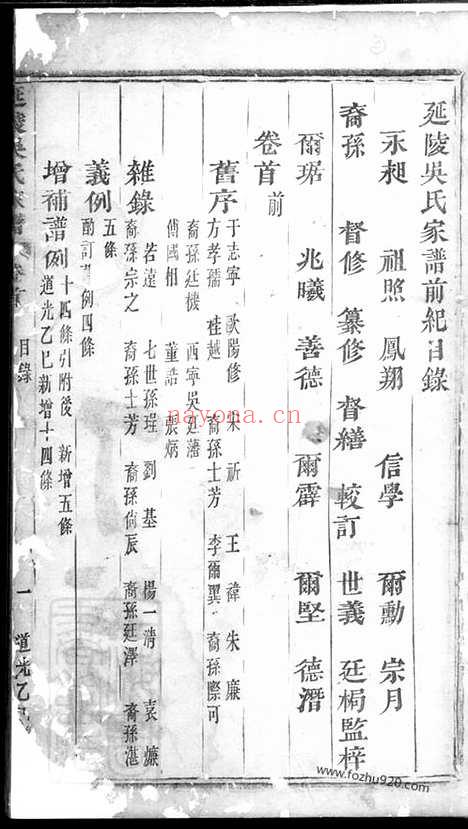 延陵吳氏家譜前紀目錄
永昶 祖照 鳳翔 信學 爾勳 宗月
裔孫 督修 纂修 督繕 較訂 世義 廷梮監梓
爾琚 兆曦 善德 爾霹 爾堅 德潛
卷首 前
舊序 于志寧 歐陽修 宋祈 王禕 朱廉
方孝孺 桂越 裔孫士芳 李爾翼 裔孫際可
裔孫廷機 西寧吳廷藩
傅國相 董誥 張炳
雜錄 若遠 七世孫珵 劉基 楊一清 袁㷡
裔孫宗之 裔孫士芳 裔孫倘辰 裔孫廷澤 裔孫湛
義例 五條
酌訂 例四條
增補譜例 十四條引附後 新增五條
道光乙巳新增十四條
延陵吳氏家譜 卷首 目錄 一 道光乙巳
nayona.cn
www.fozhu920.com